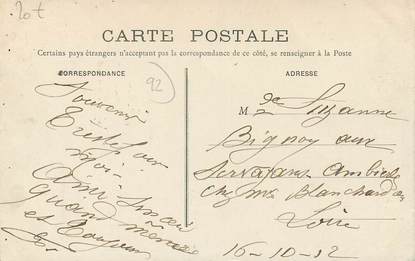 20 t
CARTE POSTALE
Certains pays étrangers n'acceptant pas la correspondance de ce côté, se renseigner à la Poste
CORRESPONDANCE
92
ADRESSE
Souvenir
Triste
Moi
quand même
et Toujours
M Suzanne
Bignoy aux
Servajans Ambierle
Chez Mr Blanchard
Loire
16-10-12